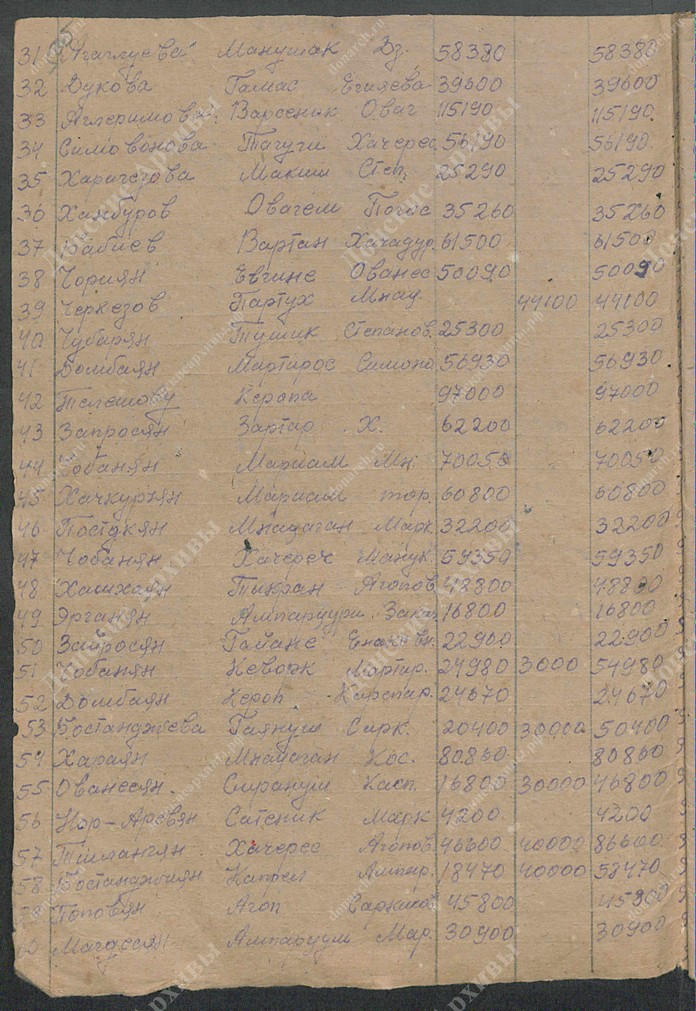 31 Агаглуева Манушак Дз. 58380 58380
32 Дукова Гамас Егияева 39600 39600
33 Аглеримова Варсеник Оваг 115190 115190
34 Симовонова Тагуги Хачерес 56190 56190
35 Харагезова Макши Степ. 25290 25290
36 Хамбуров Овагем Погос 35260 35260
37 Бабиев Вартан Хачадур 61500 61500
38 Чориян Евгине Ованес 50090 50090
39 Черкезов Партух Мнац. 44100 44100
40 Чубарян Тушик Степанов. 25300 25300
41 Домбаян Мартирос Симоно 56930 56930
42 Телешову Керопа 97000 97000
43 Запросян Зартар Х. 62200 62200
44 Чобанян Мариам Мн. 70050 70050
45 Хачкурян Мариам тор. 60800 60800
46 Постукян Мнацаган Марк 32200 32200
47 Чобанян Хачереч Манук 59350 59350
48 Хашхаян Тикран Агопов 48800 48800
49 Эрганян Ампарцум Закар 16800 16800
50 Запросян Гайане 22900 22900
51 Чобанян Кеворк Мартир. 24980 3000 54980
52 Домбаян Кероп Карапар. 24670 24670
53 Бостанджиева Гаянуш Сарк. 20400 30000 50400
54 Хараян Мнацаган Кос. 80860 80860
55 Ованесян. Сирануш Касп. 16800 30000 46800
56 Нор-Аревян Сатеник Марк 4200 4200
57 Хачерес Агопов 46600 40000 86600
58 Бостанджиян Капрел Ампар. 18470 40000 58470
59 Поповян Агоп Саркисов 45800 45800
60 Магдесян Ампарцум Мар. 30900 30900